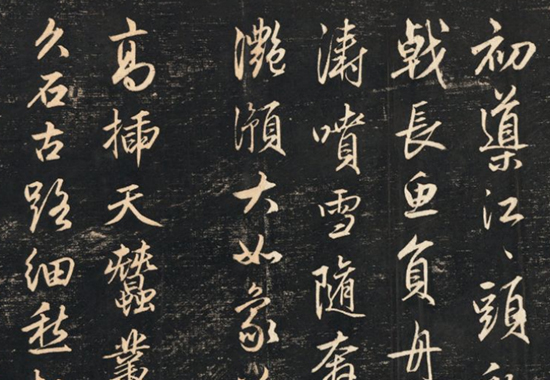 初導江、頭
戟長魚負舟
濤噴雪隨奔
灔澦大如象
高插天蠶叢
久石古路細愁